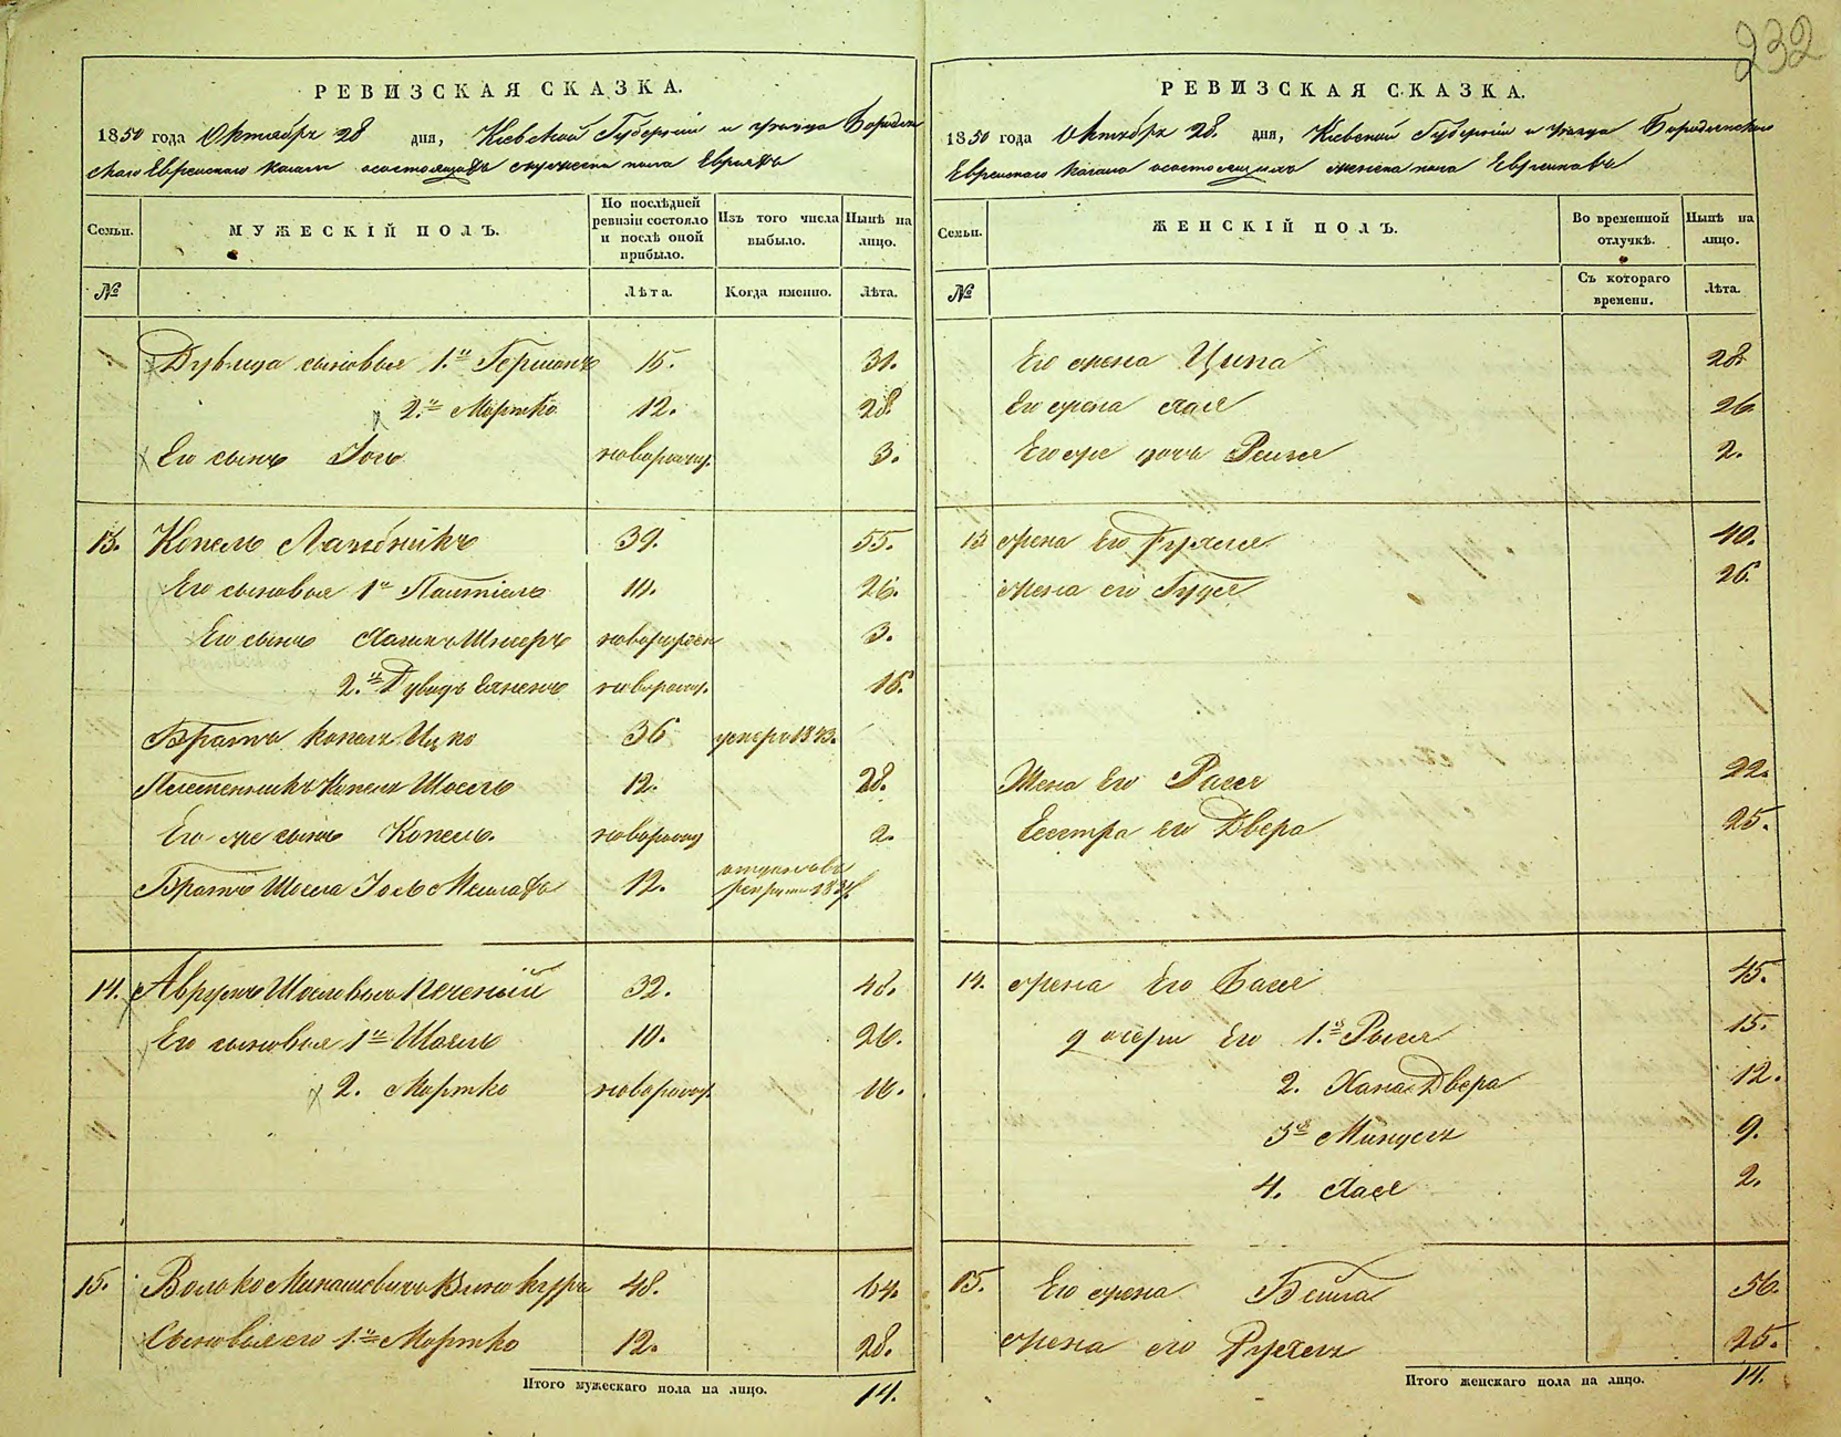 232
РЕВИЗСКАЯ СКАЗКА.
1850 года Октября 28 дня, Кіевской Губерніи и уѣзда Бородян
скаго Еврейскаго Кагала о состоящихъ мужеска пола Евреяхъ
Семьи. МУЖЕСКІЙ ПОЛЪ. По послѣдней ревизіи состояло и послѣ оной прибыло. Изъ того числа выбыло. Нынѣ на лицо.
№ Лѣта. Когда именно. Лѣта.
Дувида сыновья 1й Гершонъ 15. 31.
2й Мортко 12. 28.
Его сынъ Іось новорожд. 3.
13. Копель 39. 55.
Его сыновья 1й 10. 26.
Его сынъ новорожден 3.
2й Дувидъ новорожд. 16.
Братъ Копеля Ицко 36 умеръ 1843.
Племенникъ Копеля Шоель 12. 28.
Его же сынъ Копель. новорожд 2.
Братъ Шоеля 12. рекруты
14. Аврумъ Шоелевичъ Печеный 32. 48.
Его сыновья 1й Шоель 10. 26.
2. Мортко новорожд. 16.
15. Волько Минашевичъ Винокуръ 48. 64.
Сыновья его 1й Мортко 12. 28.
Итого мужескаго пола на лицо. 14.
РЕВИЗСКАЯ СКАЗКА.
1850 года Октября 28. дня, Кіевской Губерніи и уѣзда Бородянскаго
Еврейскаго Кагала о состоящихъ женска пола Еврейкахъ
Семьи. ЖЕНСКІЙ ПОЛЪ. Во временной отлучкѣ. Нынѣ на лицо.
№ Съ котораго времени. Лѣта.
Его жена Ципа 28
Его жена Хася 26
Его же дочь 2.
13 жена Его Рухля 40.
жена его Гудся 26.
Жена Его Рася 22.
Сестра его Двера 25.
14. жена Его Бася 45.
дочери Его 1я Рыся 15.
2. Хана Двера 12.
3я Миндся 9.
4. Хася 2.
15. Его жена Бейла 56.
жена его Рухля 25.
Итого женскаго пола на лицо. 14.